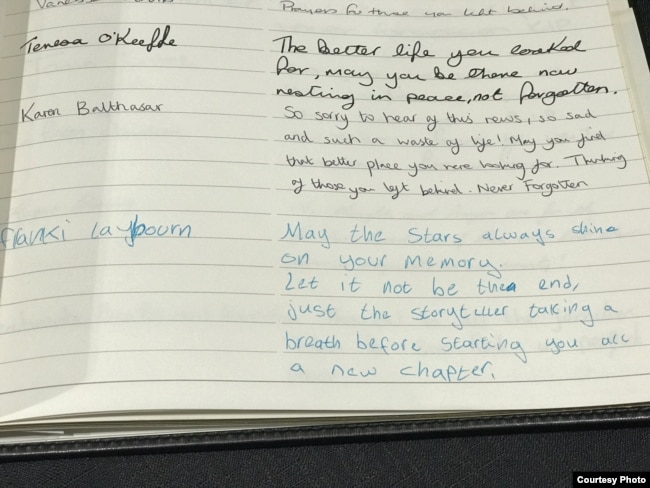 Prayers for those you left behind.
Teresa O'Keeffe
The better life you looked
for, may you be there now
resting in peace, not forgotten.
Karen Balthasar
So sorry to hear of this news, so sad
and such a waste of life! May you find
that better place you were looking for. Thinking
of those you left behind. Never Forgotten
franki laybourn
May the Stars always shine
on your Memory.
Let it not be the end,
just the storyteller taking a
breath before starting you all
a new chapter.
Courtesy Photo